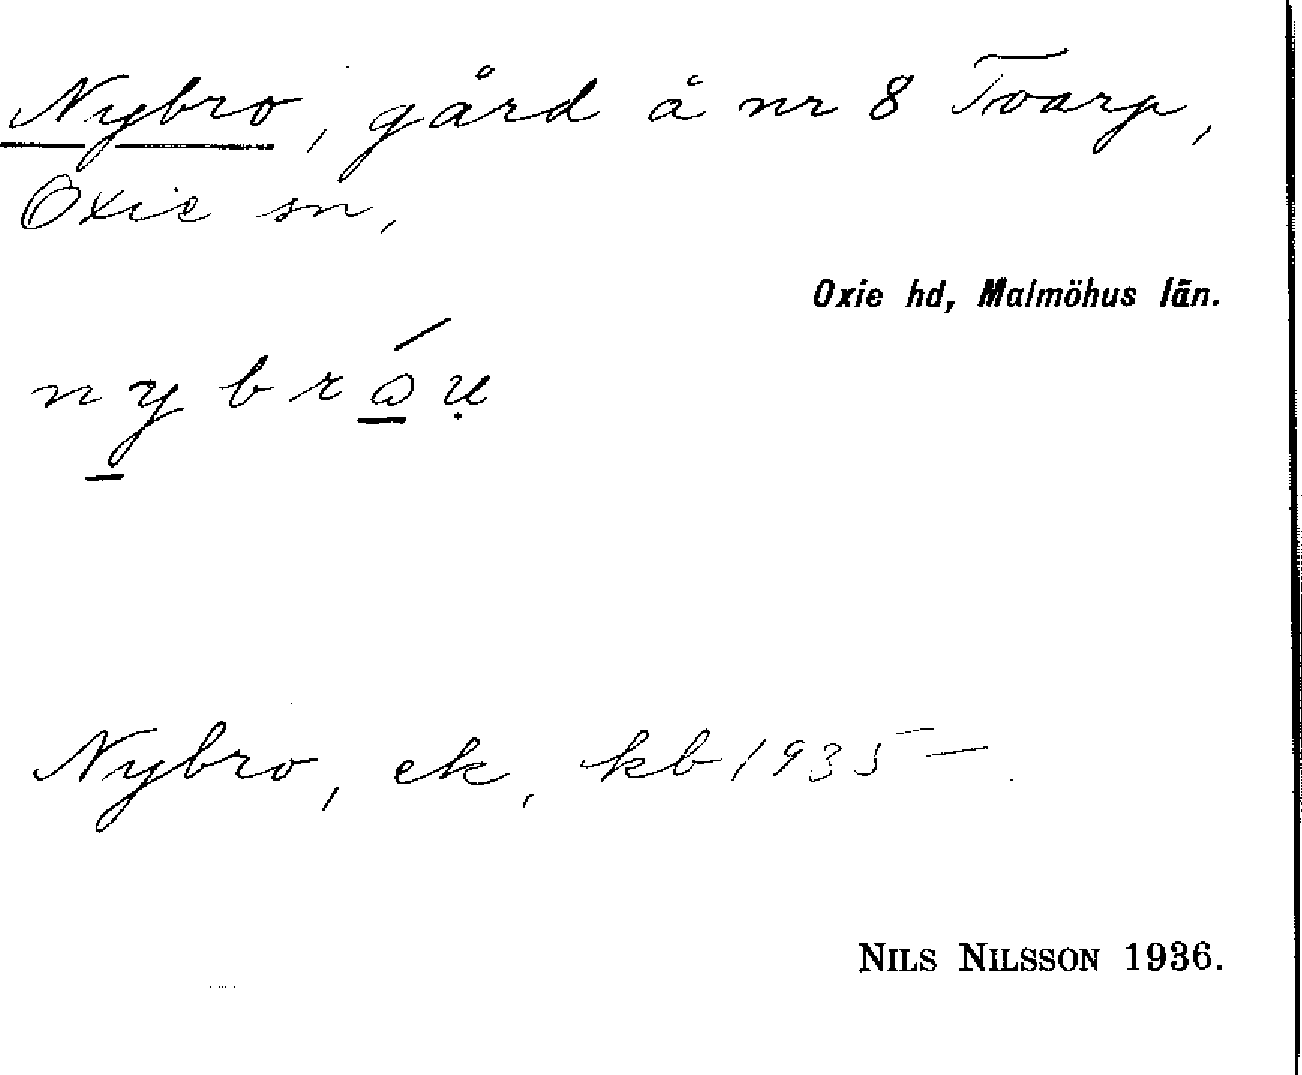 Nybro, gård å nr 8 Toarp,
Oxie sn,
Oxie hd, Malmöhus län.
Nybro, ek, kb 1935–.
NILS NILSSON 1936.